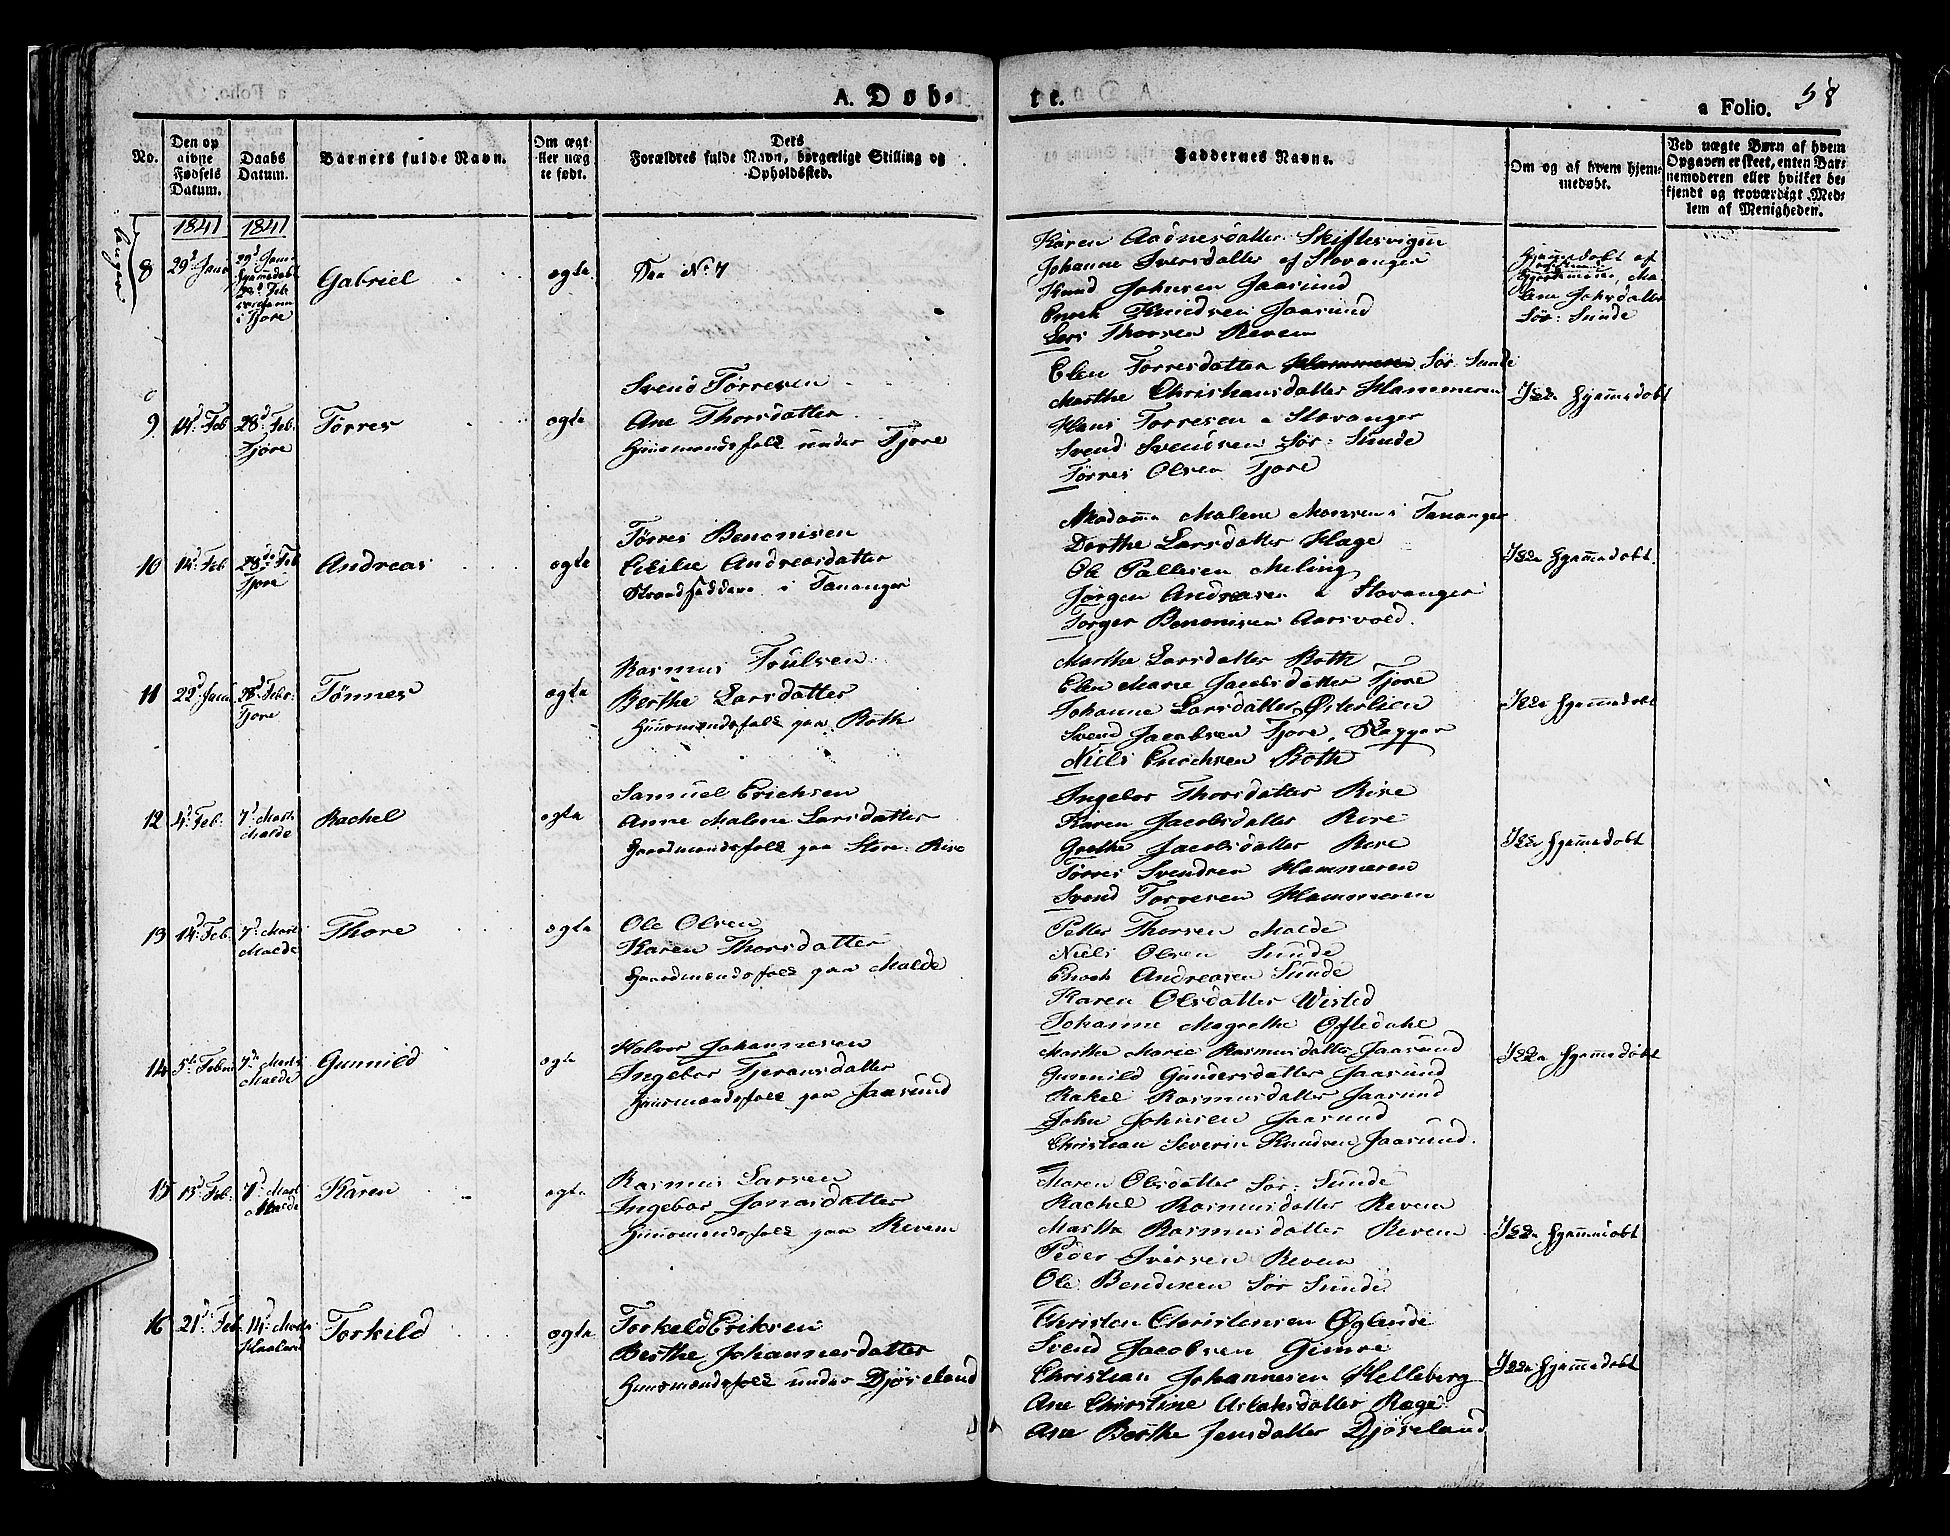 A. Døb-
te.
a Folio. 58
No.
Den op
givne
Fødsels
Datum.
Daabs
Datum.
Barnets fulde Navn.
Om ægt
eller uæg
te født.
Dets
Forældres fulde Navn, borgerlige Stilling og
Opholdssted.
Faddernes Navne.
Om og af hvem hjem-
medøbt.
Ved uægte Børn af hvem
Opgaven er skeet, enten Bar-
nemoderen eller hvilket be-
kjendt og troværdigt Med-
lem af Menigheden.
1841 1841
8 29d Janr
29d Janr
hjemedøbt
i Tjore
Gabriel
ægte
Do No 7
Karen Aadnesdatter Skiftesvigen
Johanne Sversdatter af Stavanger
Knud Johnsen Jaasund
Enoch Knudsen Jaasund
Lars Thorsen Reven
Hjemedøbt af
Ma
lene Johsdatter
Sør: Sunde
9 14d Feb
28d Feb.
Tjore
Tørres
ægte
Svend Tørresen
Ane Thorsdatter
Huusmandsfolk under Tjore
Elen Torresdatter Sør Sunde
Marthe Christiansdatter Hammeren
Hans Torresen a Stavanger
Svend Svendsen Sør: Sunde
Tørres Olsen Tjore
Ikke hjemmedøbt
10 14d Feb
28de Feb
Tjore
Andreas
ægte
Tørres Benonisen
Cecilie Andreasdatter
Strandsiddere i Tananger
Madame Malene Monsen i Tananger
Dorthe Larsdatter Hage
Ole Pallesen Meling
Jørgen Andreasen a Stavanger
Torger Benonisen Aarsvold.
Ikke hjemmedøbt.
11 22d Janr
28d Febr:
Tjore
Tønnes
ægte
Rasmus Trulsen
Berthe Larsdatter
Huusmandsfolk paa Roth
Marthe Larsdatter Roth
Elen Marie Jacobsdatter Tjore
Johanne Larsdatter Østerlien
Svend Jacobsen Tjore,
Niels Enochsen Roth
Ikke hjemmedøbt
12 4d Feb:
7d Marts
Malde
Rachel
ægte
Samuel Erichsen
Anne Malene Larsdatter
Gaardmandsfolk paa Store: Rise
Ingebor Thorsdatter Rise
Karen Jacobsdatter Rise
Grethe Jacobsdatter Rise
Tørres Svendsen Hammeren
Svend Torresen Hammeren
Ikke hjemmedøbt
13 14d Feb.
7d Marts
Malde
Thore
ægte
Ole Olsen
Karen Thorsdatter
Gaardmandsfolk paa Malde
Petter Thorsen Malde
Niels Olsen Sunde
Enoch Andreasen Sunde
Karen Olsdatter Wisted
Johanne Magrethe Oftedahl
14 5te Febr
7de Marts
Malde
Gunnild
ægte
Halvor Johannesen
Ingebor Tjeransdatter
Huusmandsfolk paa Jaasund
Marthe Marie Rasmusdatter Jaasund
Gunnild Gundersdatter Jaasund
Rakel Rasmusdatter Jaasund
John Johnsen Jaasund
Christian Severin Knudsen Jaasund.
Ikke hjemmedøbt
15 13d Feb:
7d Marts
Malde
Karen
ægte
Rasmus Larsen
Ingebor Jonasdatter
Huusmandsfolk paa Reven
Maren Olsdatter Sør: Sunde
Rachel Rasmusdatter Reven
Marthe Rasmusdatter Reven
Peder Iversen Reven
Ole Bendixen Sør Sunde
Ikke hjemmedøbt
16 21d Feb
14d Marts
Haaland
Torkild
ægte
Torkeld Eriksen
Berthe Johannesdatter
Huusmandsfolk under Djøseland
Christen Christensen Øglende
Svend Jacobsen Gimre
Christian Johannesen Helleberg
Ane Christine Aslaksdatter Rage
Ane Berthe Jensdatter Djøseland
Ikke hjemmedøbt